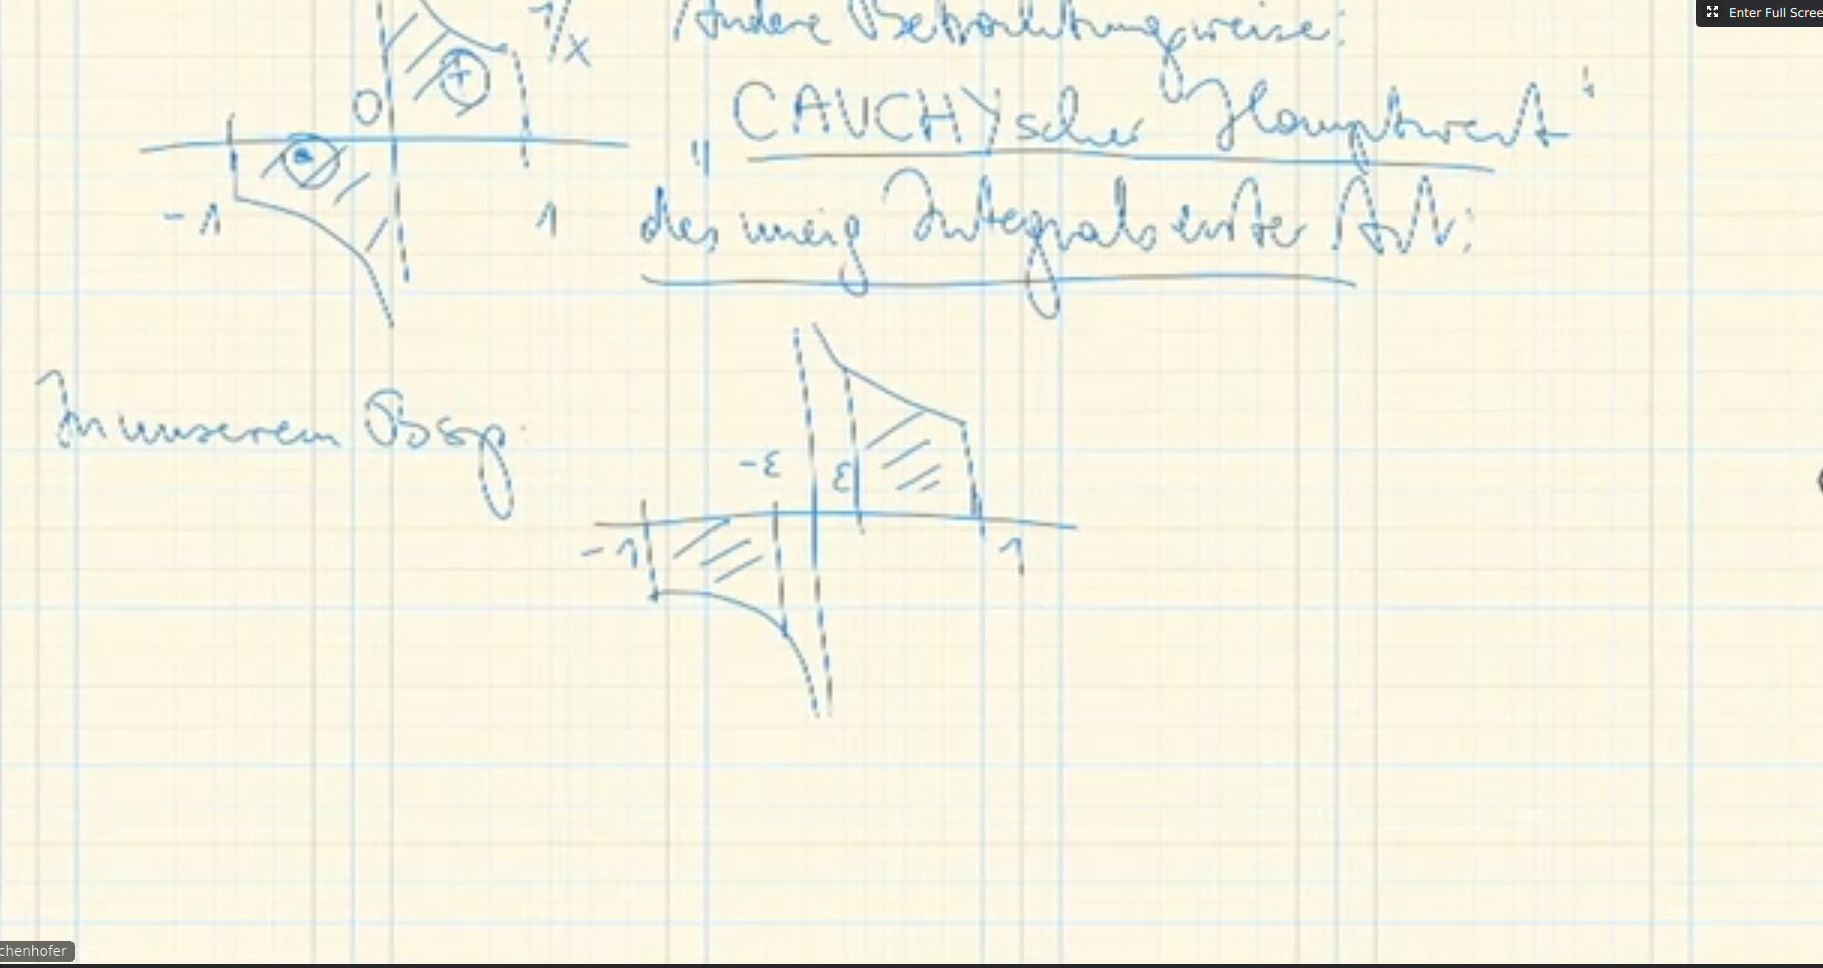 1/x
Andere Betrachtungsweise:
Enter Full Scree
+
0
"CAUCHYscher Hauptwert"
-
-1
1
des uneig Integrals erster Art:
In unserem Bsp.
-ε
ε
-1
1
chenhofer